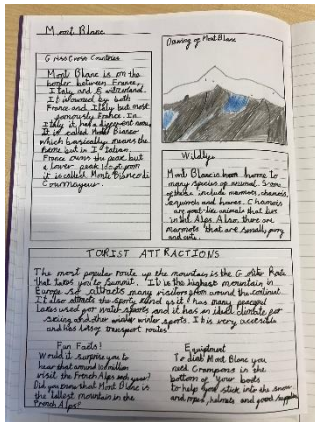 Mont Blanc
Criss Cross Countries
Mont Blanc is on the
border between France,
Italy and Switzerland.
It is owned by both
France and Italy but most
famously France. In
Italy it has a different name
It is called Monte Bianco
which basically means the
same but in Italian.
France owns the peak but
a lower peak
it is called Monte Bianco di
Courmayeur.
Drawing of Mont Blanc
Wildlife
Mont Blanc is home to
many species of animal. Some
of these include marmots, chamois,
and hares. Chamois
are goat-like animals that live
in the Alps. Also there are
marmots that are small, furry
and cute.
TOURIST ATTRACTIONS
The most popular route up the mountain is the Goûter Route
that takes you to Summit. It is the highest mountain in
Europe so attracts many visitors from around the continent.
It also attracts the sporty kind as it has many peaceful
lakes used for water sports and it has an ideal climate for
skiing and other winter sports. It is very accessible
and has large transport routes!
Fun Facts!
Would it surprise you to
hear that around million
visit the French Alps each year?
Did you know that Mont Blanc is
the tallest mountain in the
French Alps?
Equiptment
To climb Mont Blanc you
need Crampons in the
bottom of your boots
to help you stick into the snow
and ropes, helmets and good supplies